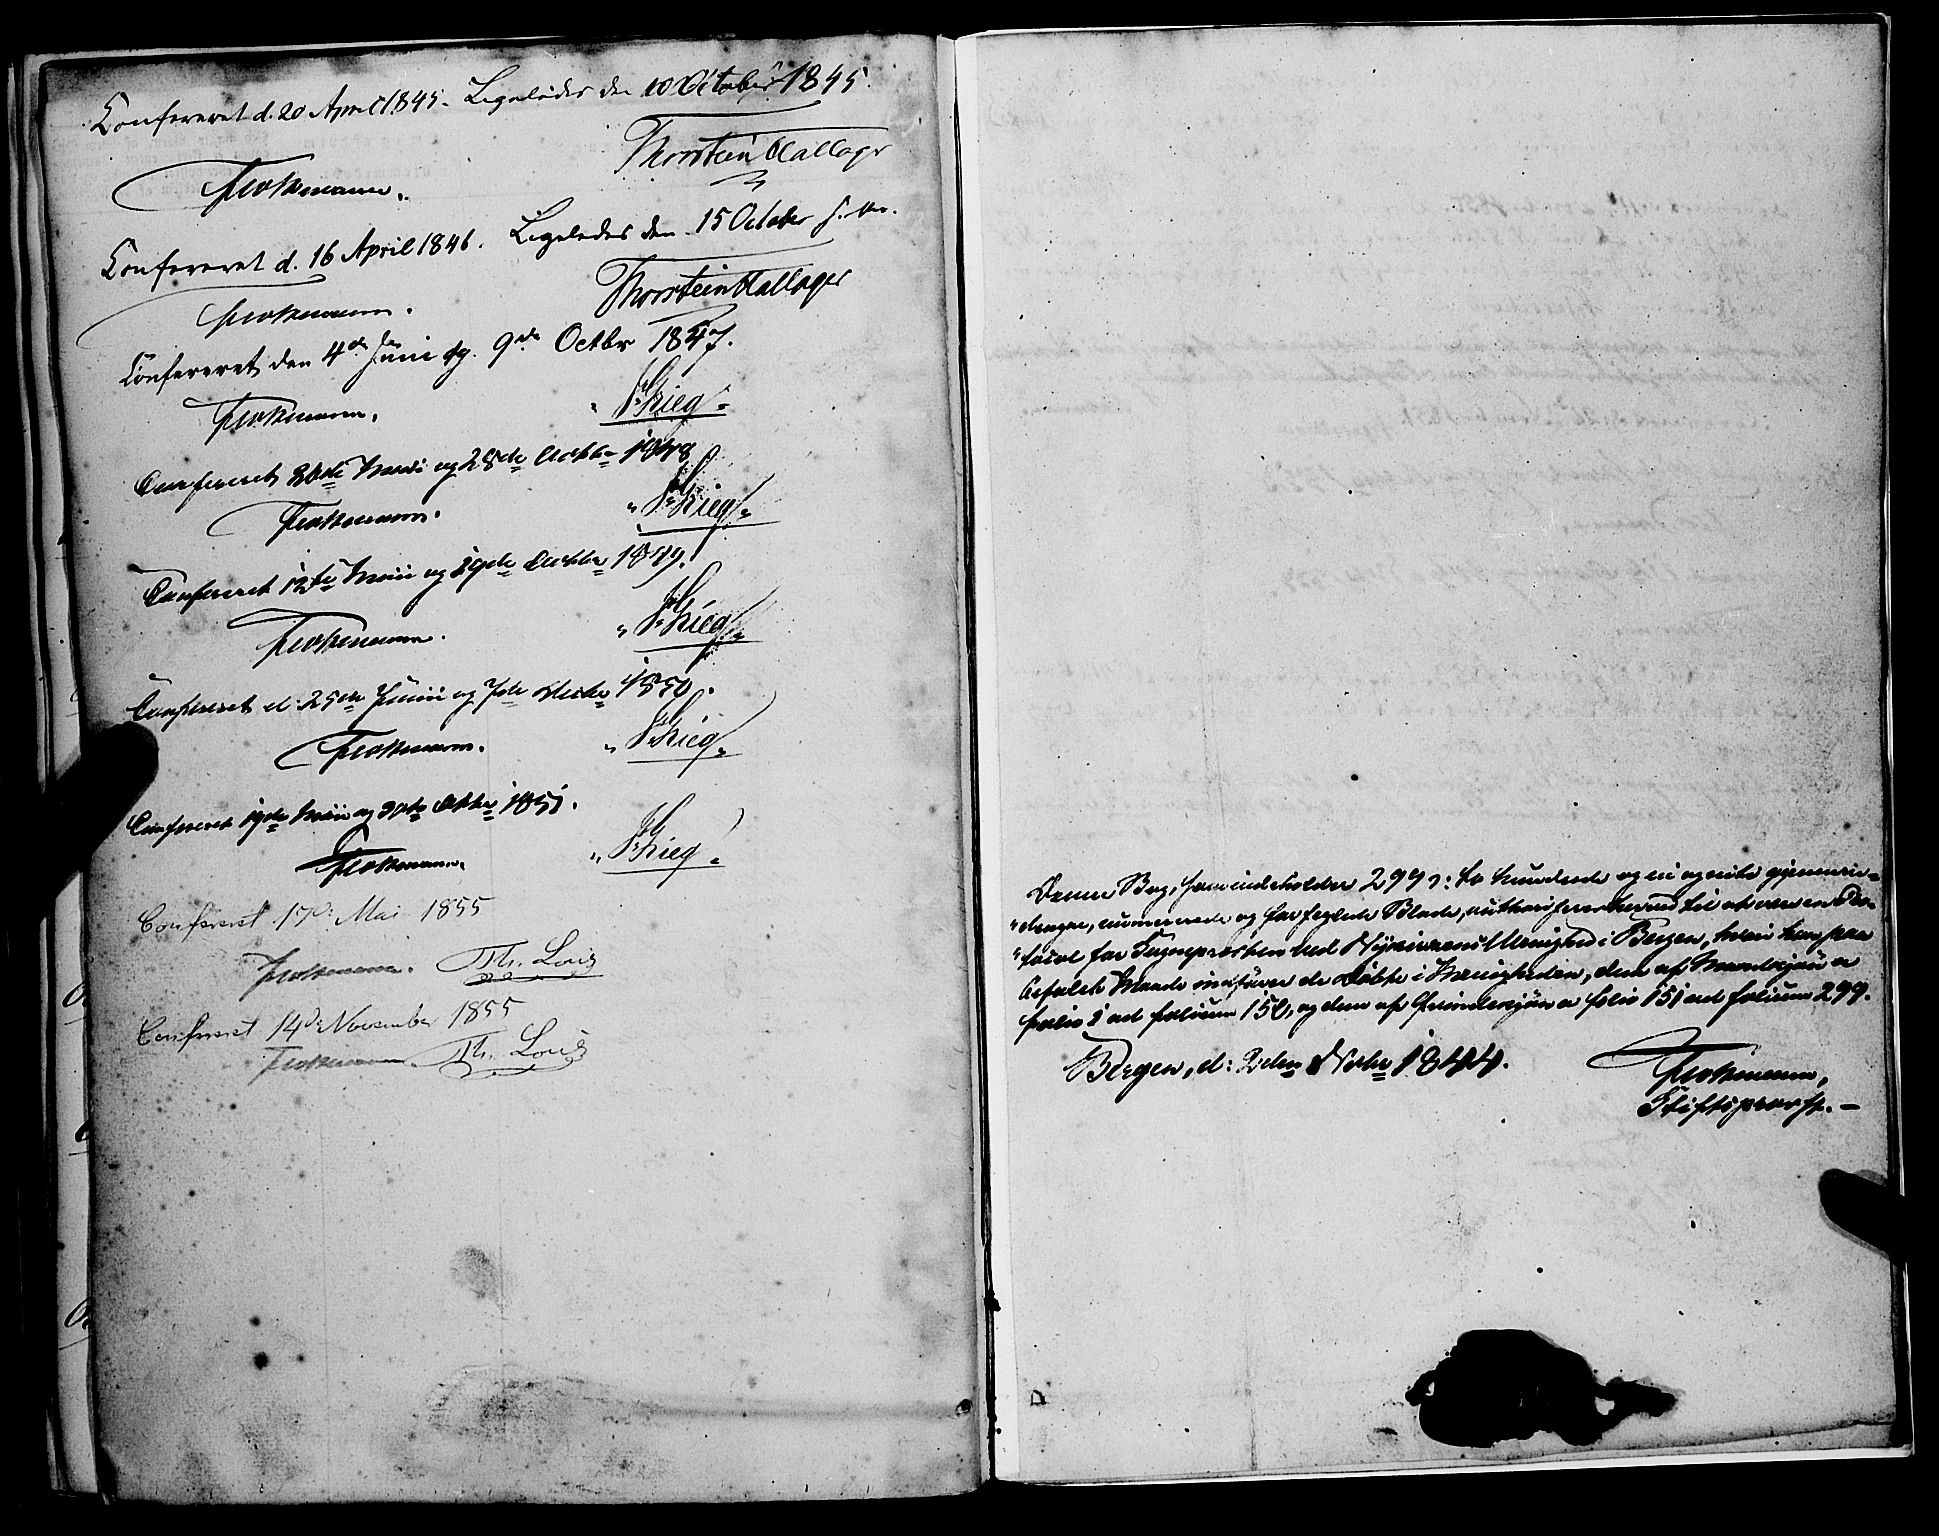 Confereret d. 20 April 1845. Ligeledes den 10 October 1845.
Thorstein Hallager
Confereret d. 16 April 1846. Ligeledes den 15 October s. A.
Thorstein Hallager
Confereret den 4de Juni og 9de Octbr 1847.
Grieg
Confereret 26de Mai og 25de Octbr 1848
Grieg
Confereret 12te Mai og 19de Octbr 1849.
Grieg
Confereret d: 25de Juni og 7de Octbr 1850.
Grieg
Confereret 19de Mai og Octbr 1851.
Grieg
Confereret 17de Mai 1855
Th.
Confereret 14de November 1855
Th.
Denne Bog, som indeholder 299 ɔ: to hundrede og ni og niti gjennem-
dragne, numererede og forseglede Blade, authoriseres herved til at være en Pro-
tocol for Sognepræsten ved Nykirkens Menighed i Bergen, hvori han paa
befalet Maade indfører de Døbte i Menigheden, dem af Mandkjøn a
folio 1 ad folium 150, og dem af Qvindekjøn a folio 151 ad folium 299.
Bergen, d: 2den Novbr 1844.
Stiftsprovst.